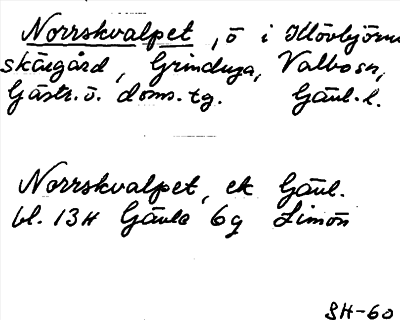 Norrskvalpet, ö i Illövbjörns
skärgård, Grinduga, Valbo sn,
Gästr. ö. doms. tg. Gävl. l.
Norrskvalpet, ek Gävl.
bl. 13H Gävle 6g Limön
SH-60